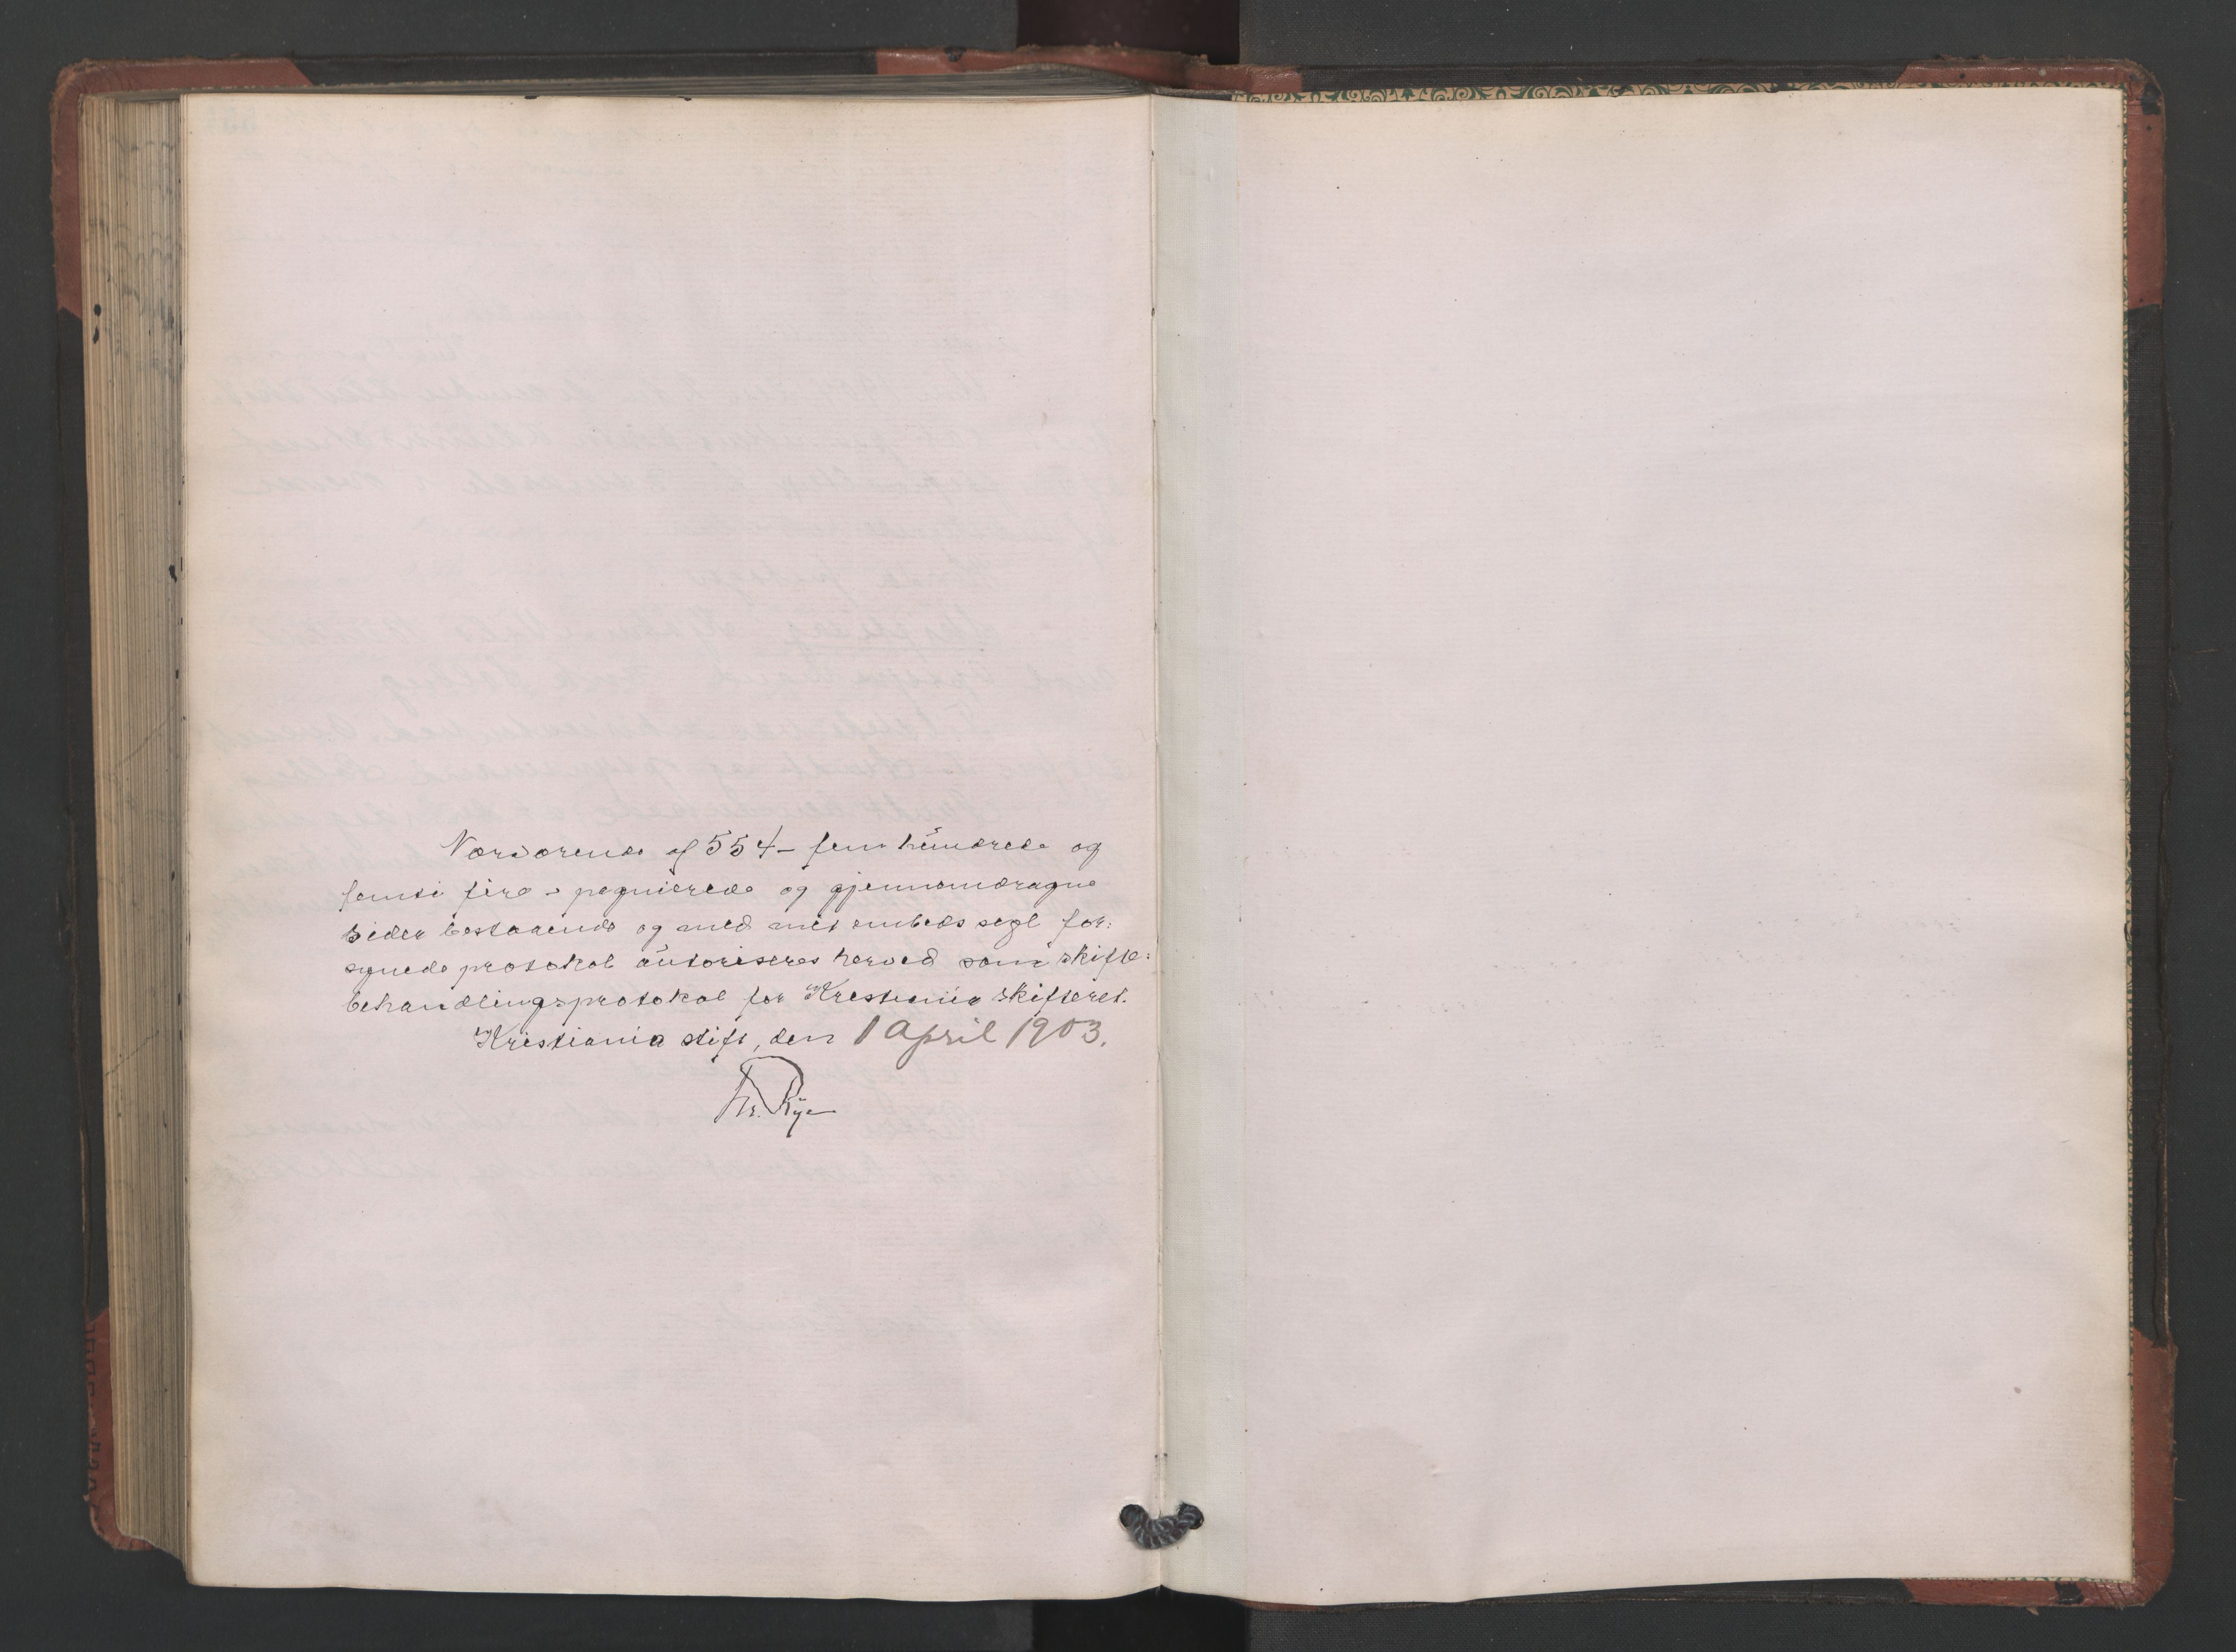 Nærværende af 554 – fem hundrede og
femti fire – paginerede og gjennemdragne
sider bestaaende og med mit embeds segl for:
synede protokol autoriseres herved som skifte:
behandlingsprotokol for Kristiania skifteret.
Kristiania stift, den 1 April 1903.
Rye